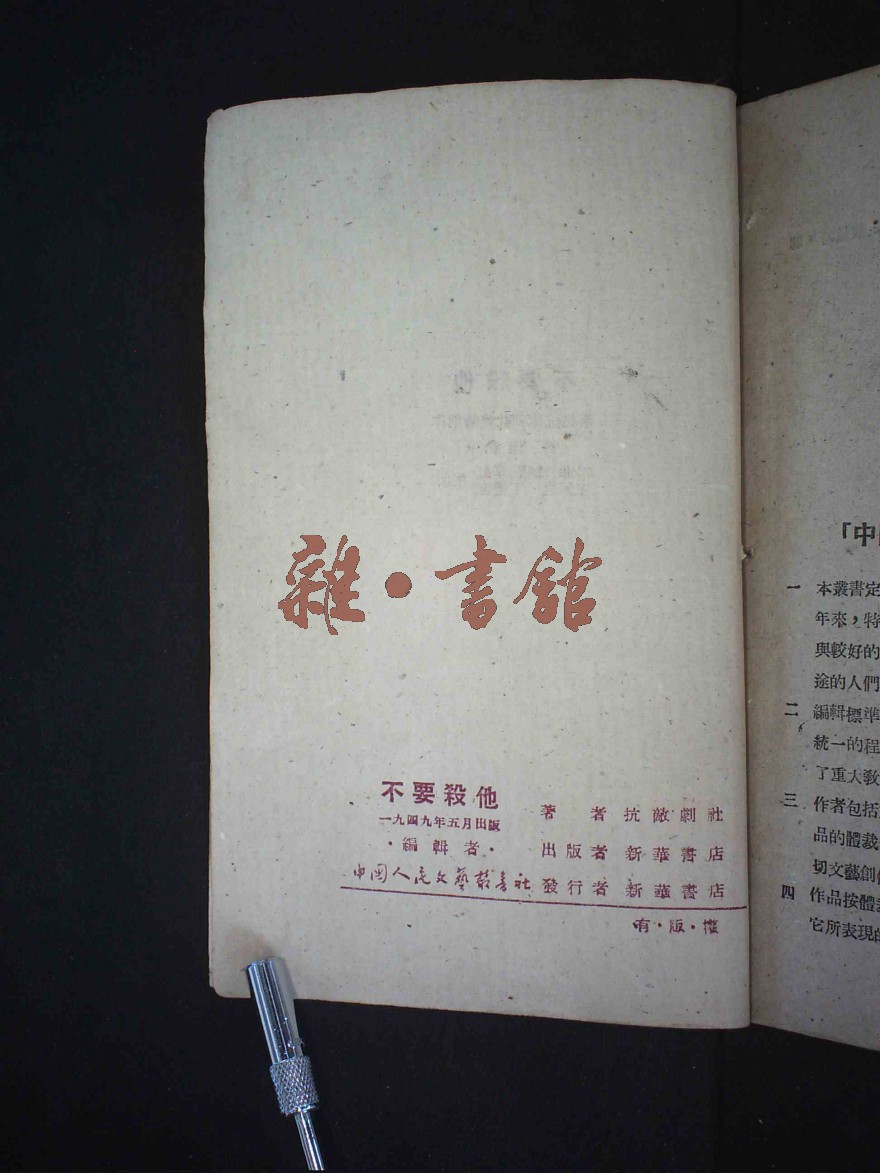 雜·書館
不要殺他
一九四九年五月出版
·編輯者·
中國人民文藝叢書社
著者抗敵劇社
出版者新華書店
發行者新華書店
有·版·權
「中
一 本叢書定
年來，特
與較好的
途的人們
二 編輯標準
統一的程
了重大教
三 作者包括
品的體裁
切文藝創
四 作品按體
它所表現的